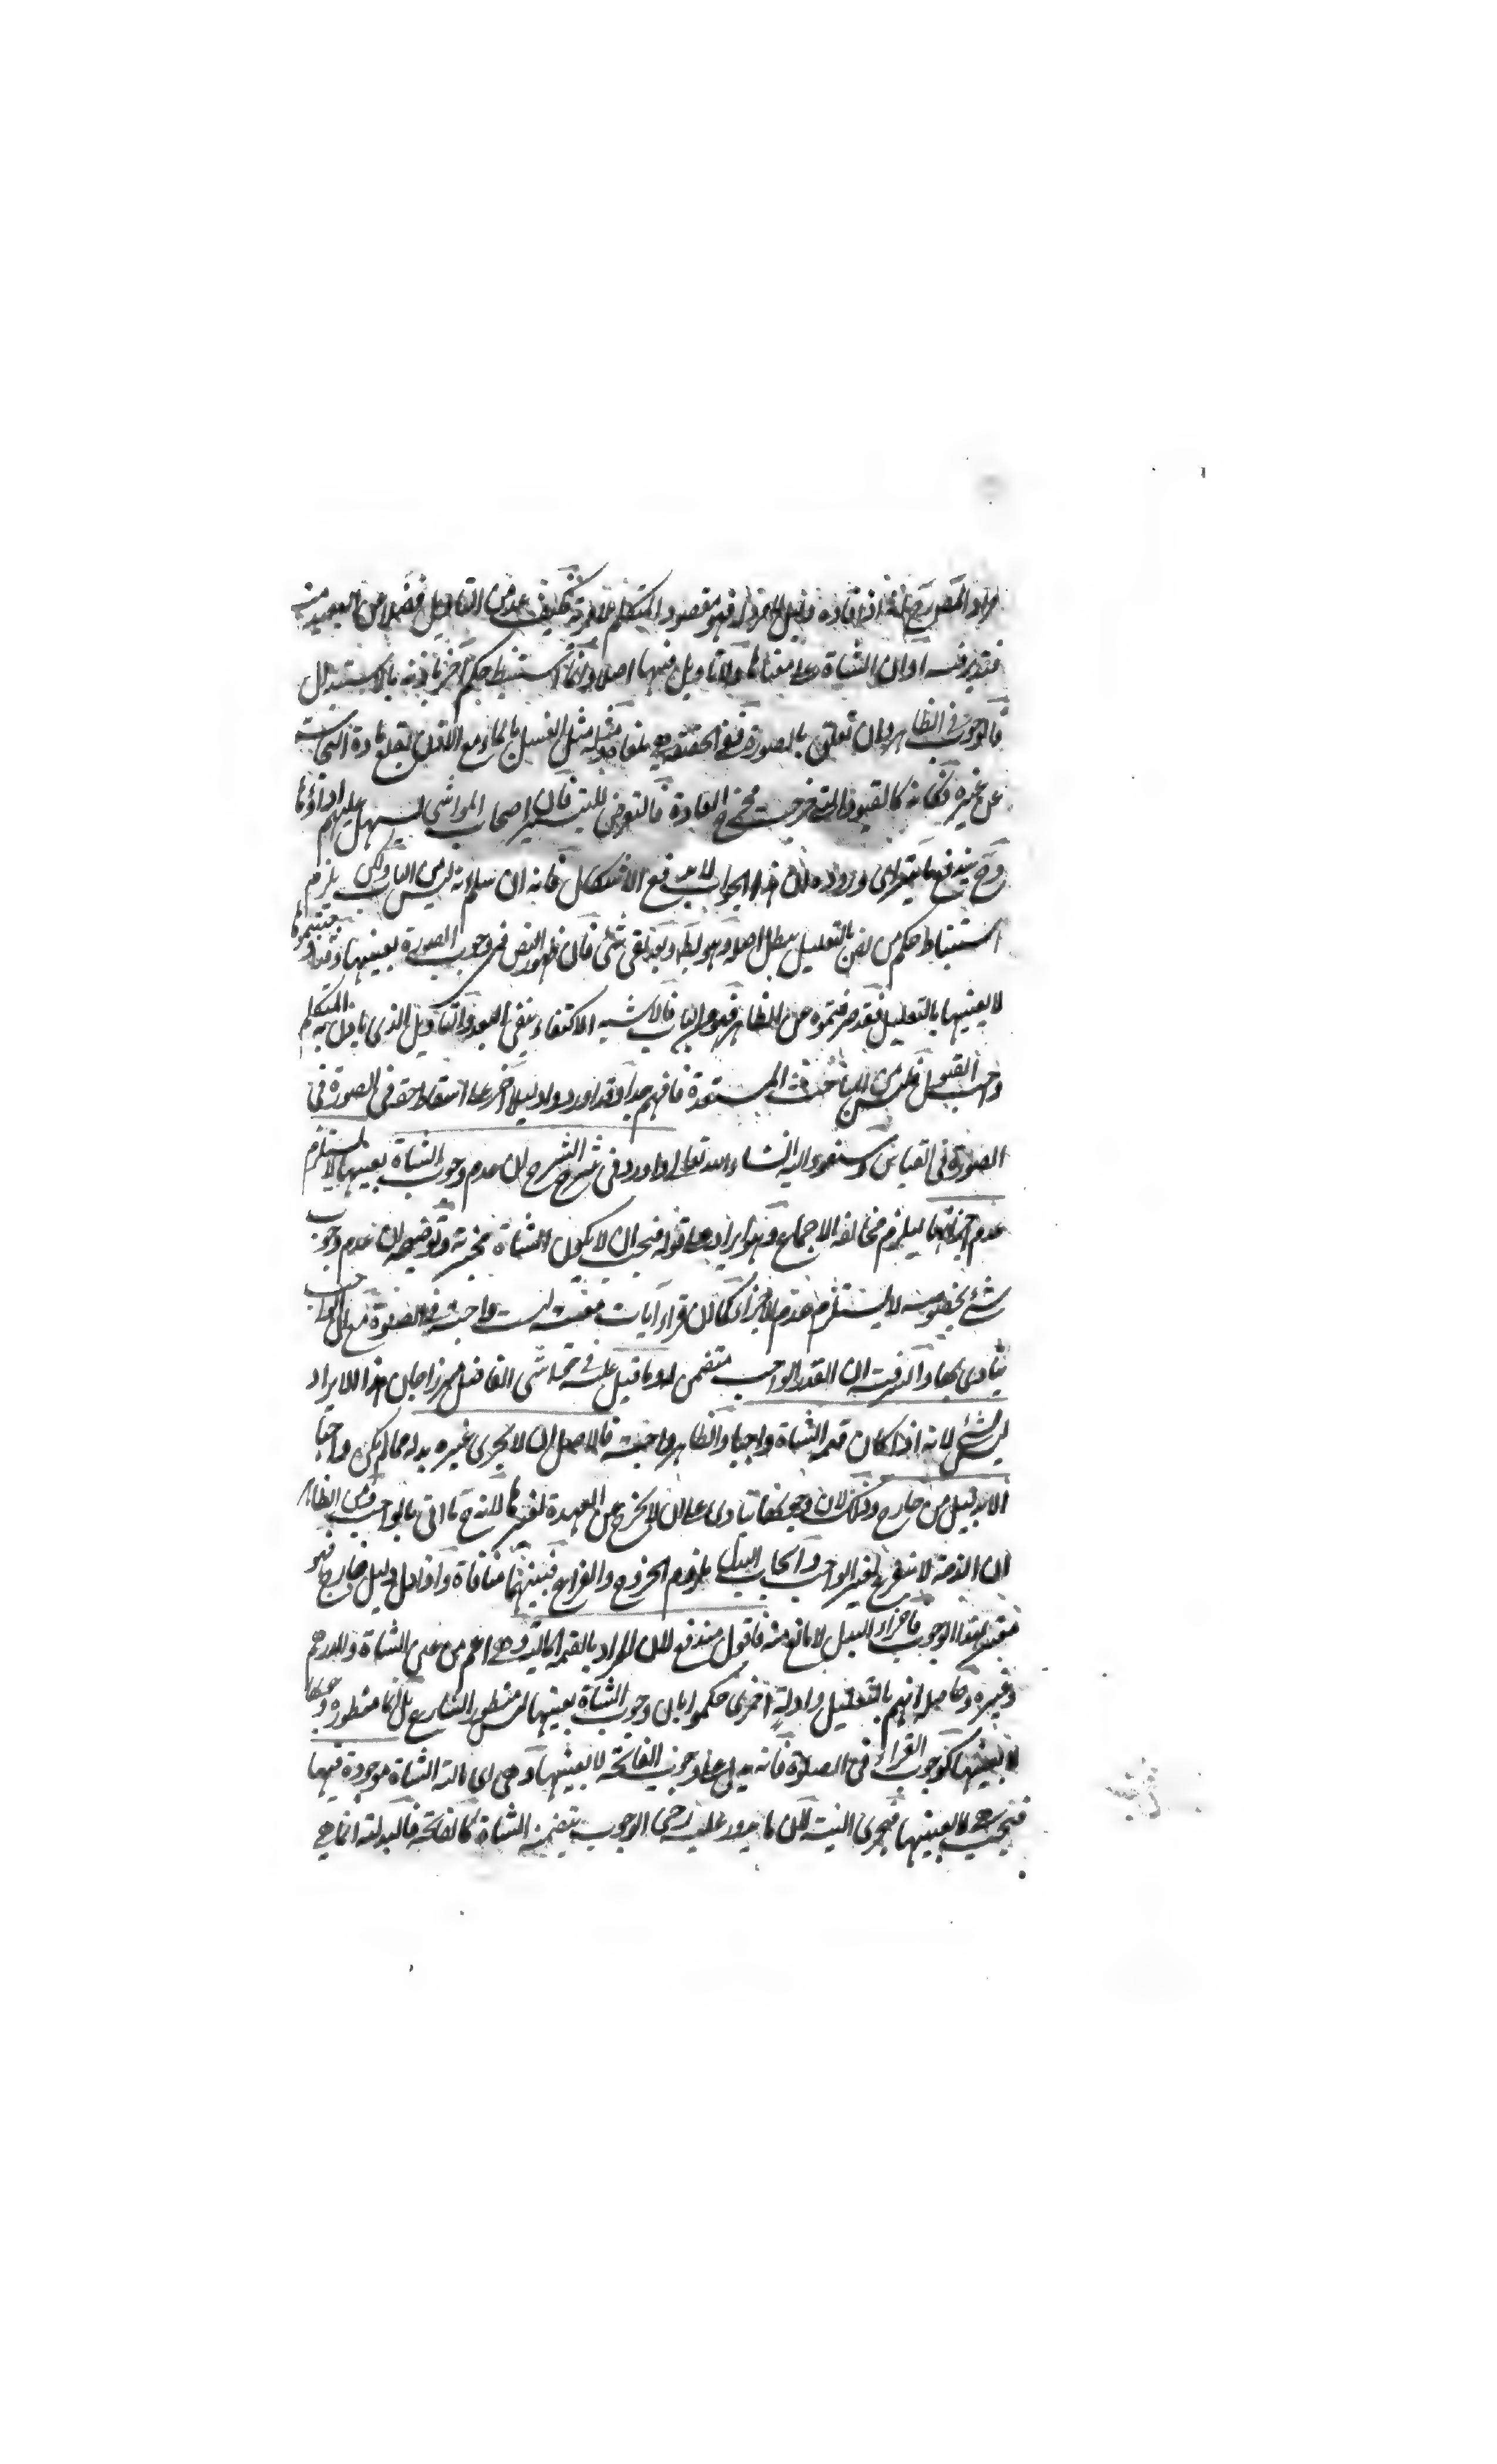 مراد المصر رح فانه اذا فاده دليل فهو مقصود المتكلم فكيف عد من التاويل فضلا من البعيد منه
فتدبر فيه او ان الشاة على معناها ولا تاويل فيها اصلا وانما استنبط حكم آخر بالاستبدال
فالوجوب في الظاهر وان تعلق بالصورة ففي الحقيقة مثله مثل الغسل بالماء مع الاذن بقلع مادة النجاسة
عن غيره فكانه كالقيود التي خرجت مخرج العادة فالتعرض للتيسير فان اصحاب المواشي يسهل عليهم اداؤها
وح يندفع ما يترائى وروده ان هذا الجواب لا يدفع الاشكال فانه ان سلم انه ليس من التاويل لكن يلزم
استنباط حكم من نص بالتعليل يبطل اصله وهو بط وبعد بقي شئ فان ظهور النص في وجوب الصورة بعينها وقد اوجبتموها
لا بعينها بالتعليل فقد صرفتموه عن الظاهر فهو فالاشبه الاكتفاء بنفي البعد والتاويل الذي يادل به المتكلم
واجب القبول فليس من المستبعدة فافهم جدا وقد اوردوا دليلا آخر على اسقاط حق في الصورة في
الصورة في القياس وسنعود اليه انشاء الله تعالى واورد في شرح الشرح ان عدم وجوب الشاة بعينها لا يستلزم
عدم اجزائها ليلزم مخالفة الاجماع وهو ايراد على قوله فيجب ان لا يكون الشاة مجزية وتوضيحه ان عدم وجوب
شئ بخصوصه لا يستلزم عدم الاجزاء كما ان قراءة آيات معينة ليست واجبة في الصلوة مع ان الواجب
يتادى بها والسر فيه ان القدر الواجب متضمن له وما قيل عليه في حواشي الفاضل ميرزا جان هذا الايراد
ليس بشئ لانه اذا كان قيمة الشاة واجبا والظاهر واجبة فالاصل ان لا يجزى غيره بدله مما لم يكن واجبا
الا بدليل من خارج وذلك لان وجوبها ينادى على ان لا يخرج عن العهدة لغيرها لانه ح ما اتى بالواجب ومن الظاهر
ان الذمة لا تفرغ لغير الواجب وايجاب البدل يلزم الخروج والفراغ فبينهما منافاة واذا دل دليل خارج فهو
الوجوب فاجزاء البدل لا مانع منه فاقول مندفع لان المراد بالقيمة المالية وهي اعم من عين الشاة والدرهم
وغيره وحاصله انهم بالتعليل وادلة اخرى حكموا بان وجوب الشاة بعينها ليس منظور الشارع بل انما منظوره وجوبها
لا بعينها كوجوب القراءة في الصلوة فانه يدل على وجوب الفاتحة لا بعينها وهي اي مالية الشاة موجودة فيها
فيجب هي لا بعينها فيجزى البتة لان ما يرد عليه رحى الوجوب يتضمنه الشاة كالفاتحة فالبدلية انما هي